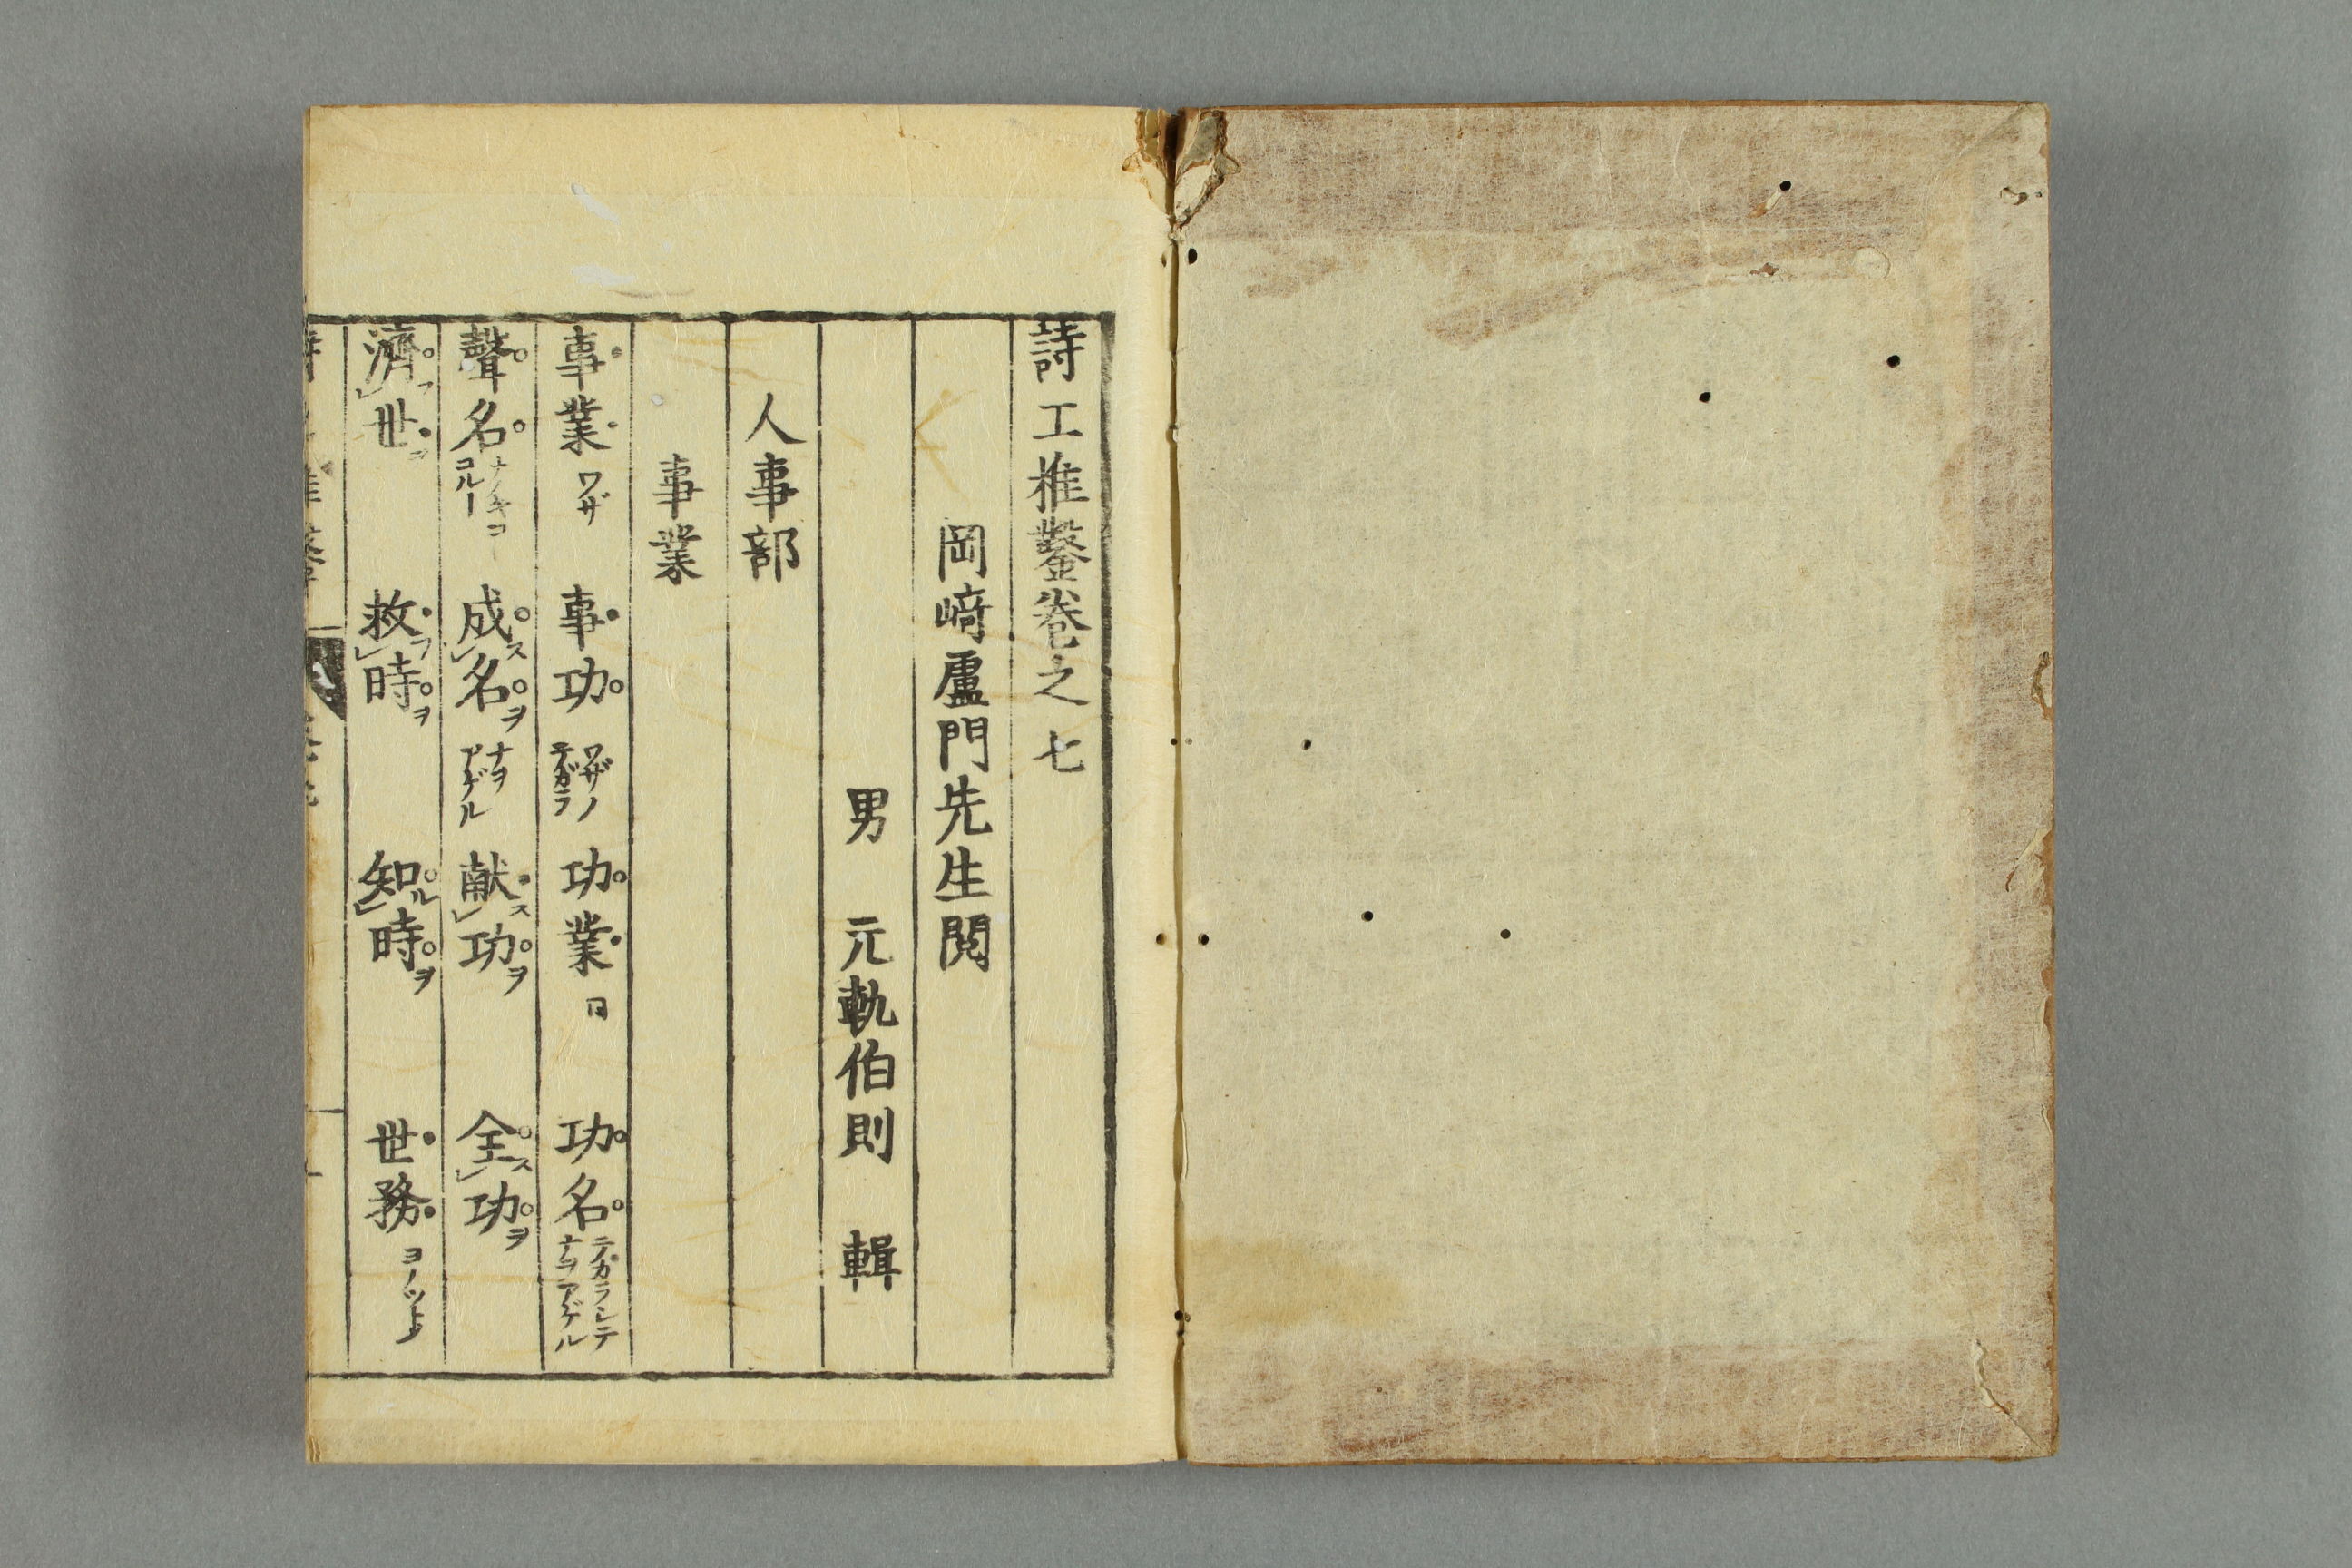 詩工推鑿卷之七
岡﨑廬門先生閲
男 元軌伯則 輯
人事部
事業
事業 ワザ 事功 ワザノテガラ 功業 同 功名 テガラシテナヲアゲル
聲名 ナノキココルー 成ス名ヲ ナヲアゲル 献ス功ヲ 全ス功ヲ
濟フ世ヲ 救フ時ヲ 知ル時ヲ 世務 ヨノツトメ